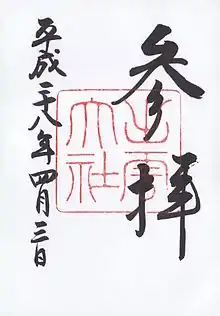 参拝
出雲大社
平成二十八年四月三日